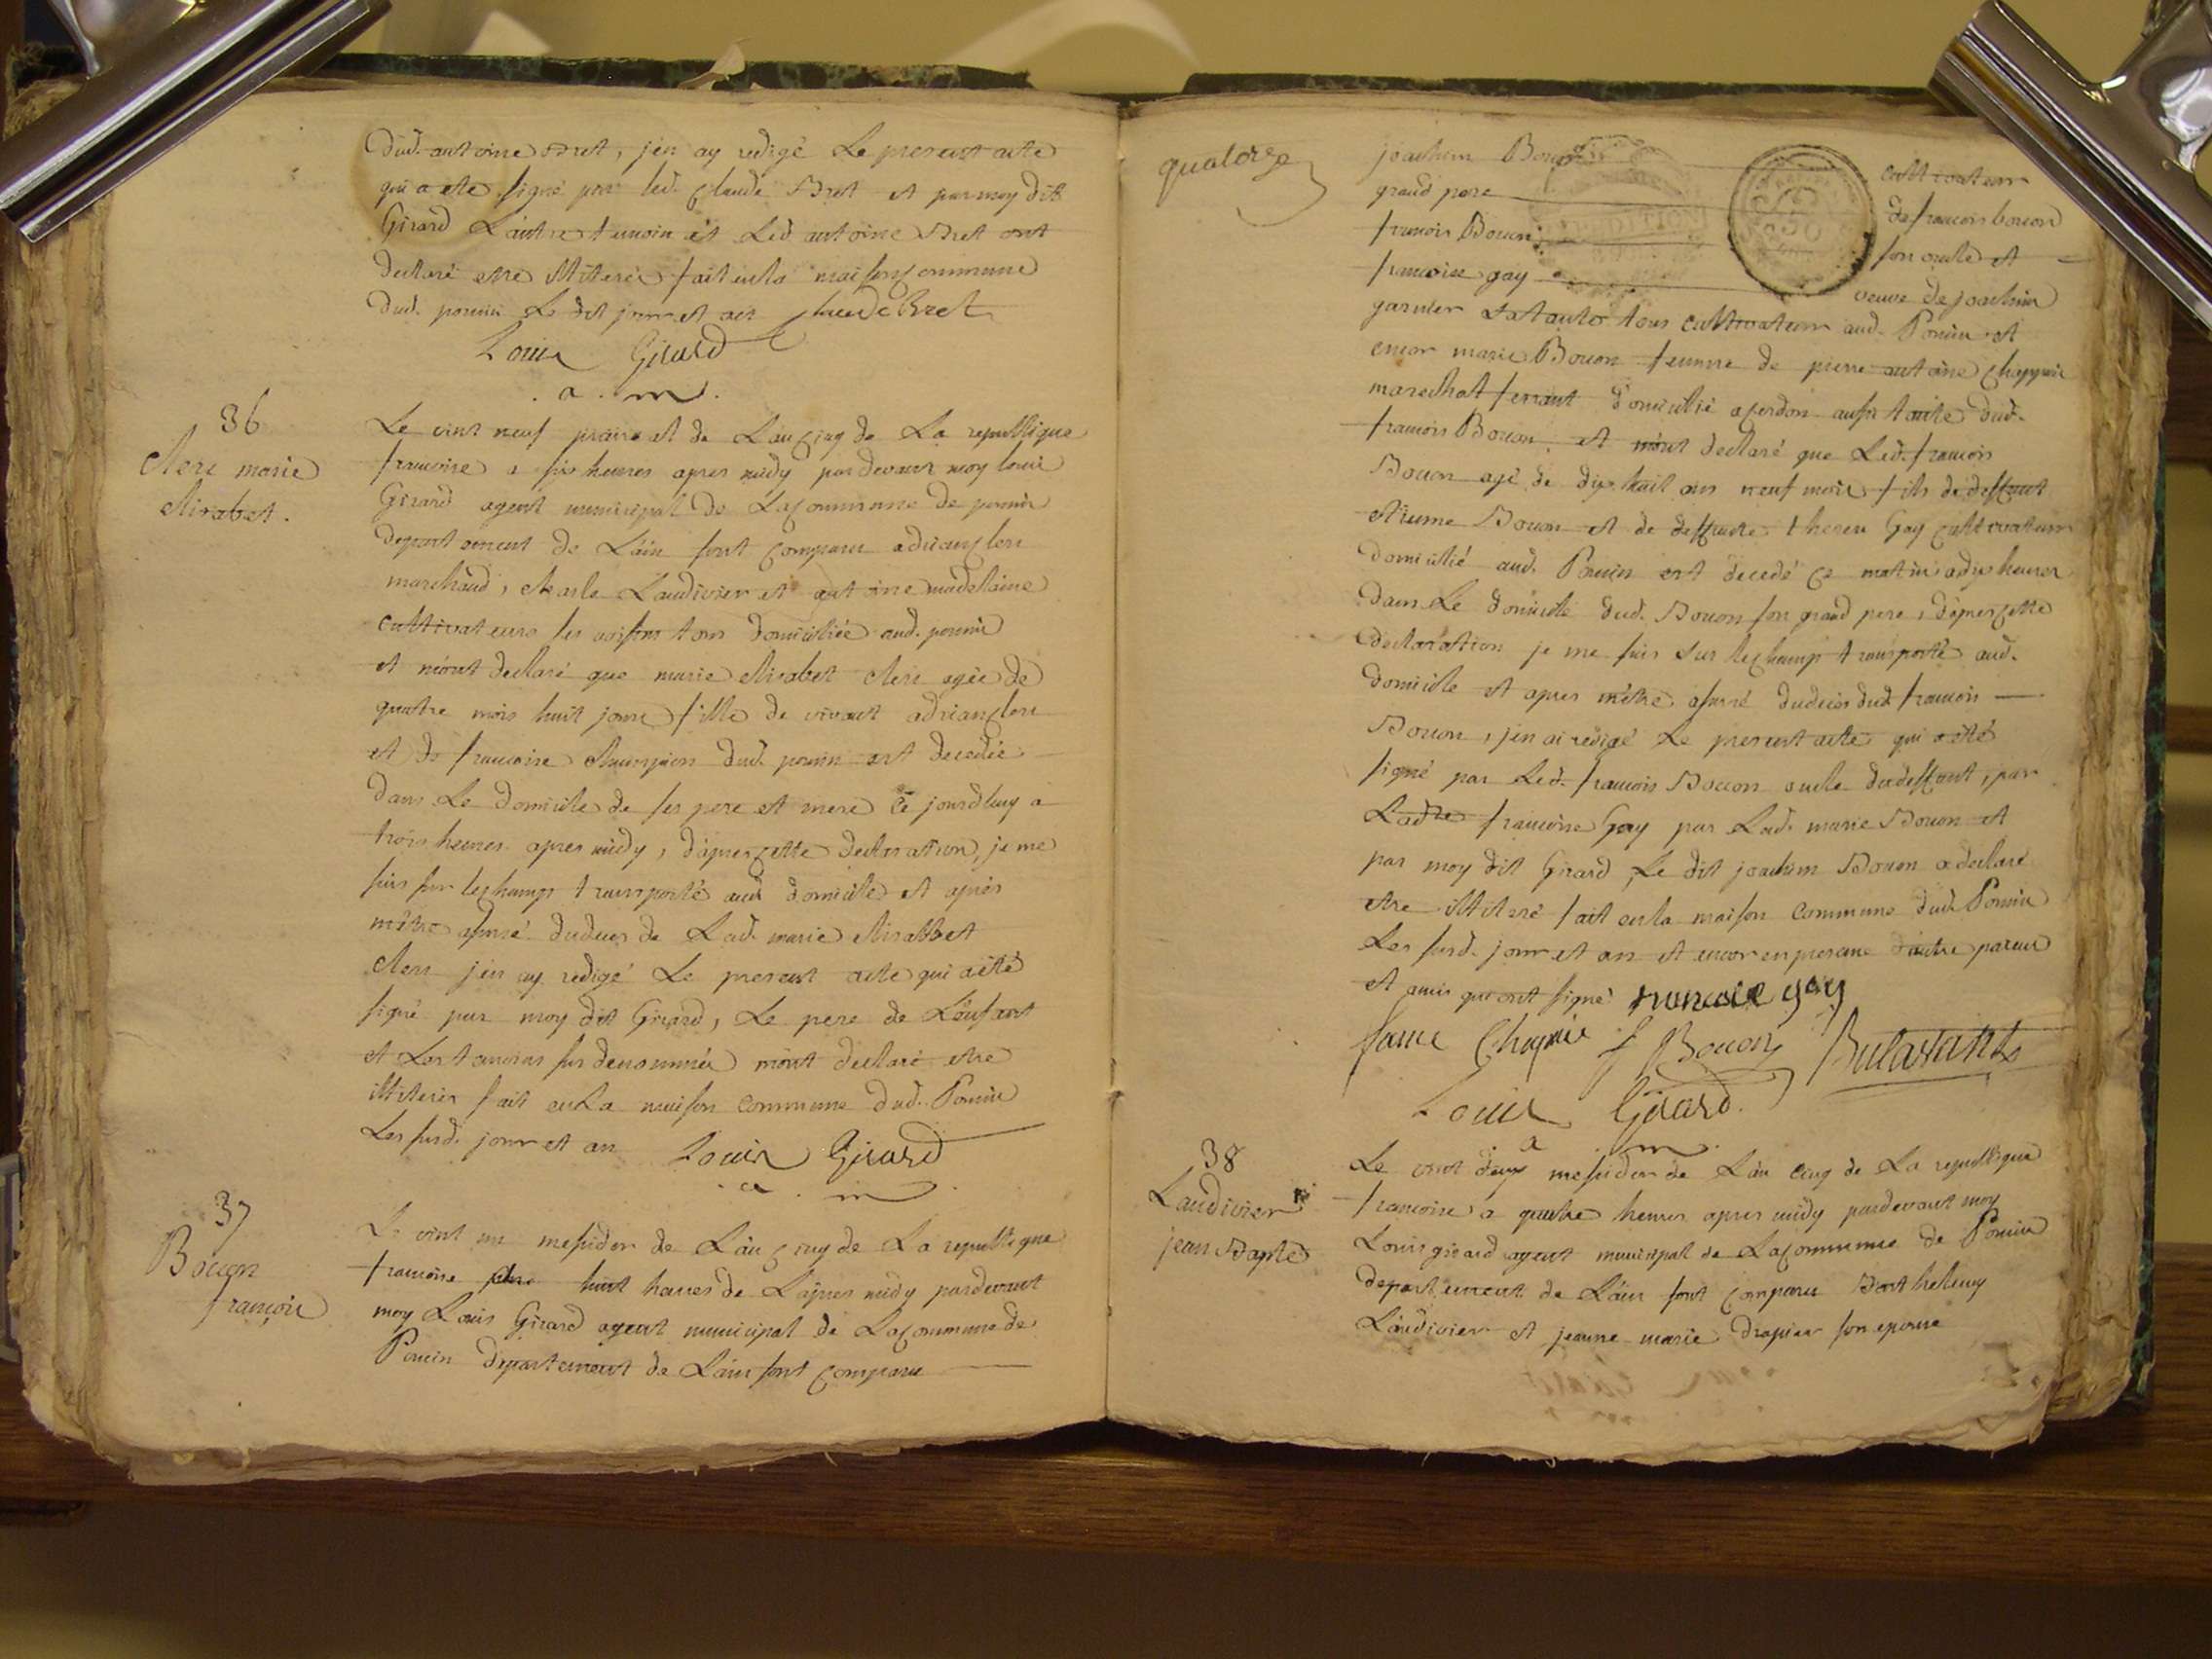 dud. antoine Bret, j'en ay redigé Le present acte
qui a ete signé par led. Claude Bret et par moy dit
Girard L'autre temoin et Led antoine Bret ont
declaré etre illiteré fait en la maison Commune
dud. poncin Le dit jour et an Claude Bret
Louis Girard
a. m.
36
Clerc marie
Elisabet.
Le vint neuf prairial de L'an cinq de La republique
francoise a six heures apres midy pardevant moy louis
Girard agent municipal de La Commune de poncin
departement de L'ain sont comparu adrian clerc
marchand, Charle Laudivier et antoine madelaine
cultivateurs ses voisins tous domiciliés aud. poncin
et m'ont declaré que marie elisabet Clerc agée de
quatre mois huit jours fille de vivant adrian clerc
et de francoise Champion dud. poncin est decedée
dans Le domicile de ses pere et mere ce jourdhuy a
trois heures apres midy, d'apres cette declaration, je me
suis sur le champ transporté aud domicile et après
m'etre assuré du deces de Lad. marie elisabet
Clerc j'en ay redigé Le present acte qui a été
signé par moy dit Girard, Le pere de L'enfant
et Les temoins sus denommés m'ont declaré etre
illiterés fait en La maison commune dud. Poncin
Les susd. jour et an Louis Girard
a. m.
37
Bocon
françois
Le vint un messidor de L'an cinq de La republique
francoise huit heures de L'apres midy pardevant
moy Louis Girard agent municipal de La Commune de
Poncin departement de L'ain sont comparu
quatorze
joachim Bocon cultivateur
grand pere de francois bocon
francois Bocon son oncle et
francoise gay veuve de joachim
garnier sa tante tous cultivateurs aud. Poncin et
encor marie Bocon femme de pierre antoine Chappuis
marechal ferrant domicilié a cerdon aussi tante dud.
francois Bocon et m'ont declaré que Led. francois
Bocon agé de dix huit ans neuf mois fils de deffunt
etienne Bocon et de deffunte therese Gay cultivateurs
domicilié aud. Poncin est decedé ce matin a dix heures
dans Le domicile dud. Bocon son grand pere, d'apres cette
declaration je me suis sur le champ transporté aud.
domicile et apres m'etre assuré du deces dud francois
Bocon, j'en ai redigé Le present acte qui a été
signé par Led. francois Bocon oncle du deffunt, par
Ladte francoise Gay par Lad. marie Bocon et
par moy dit Girard, Le dit joachim Bocon a declaré
etre illiteré fait en la maison commune dud. Poncin
Les susd. jour et an et encor en presence d'autre parens
et amis qui ont signé francoise gay
f Bocon
Louis Girard
a m.
38
Laudivier
jean Bapte
Le vint deux messidor de L'an cinq de La republique
francoise a quatre heures apres midy pardevant moy
Louis girard agent municipal de La Commune de Poncin
departement de L'ain sont comparu Barthelemy
Laudivier et jeanne marie Drapier son epouse